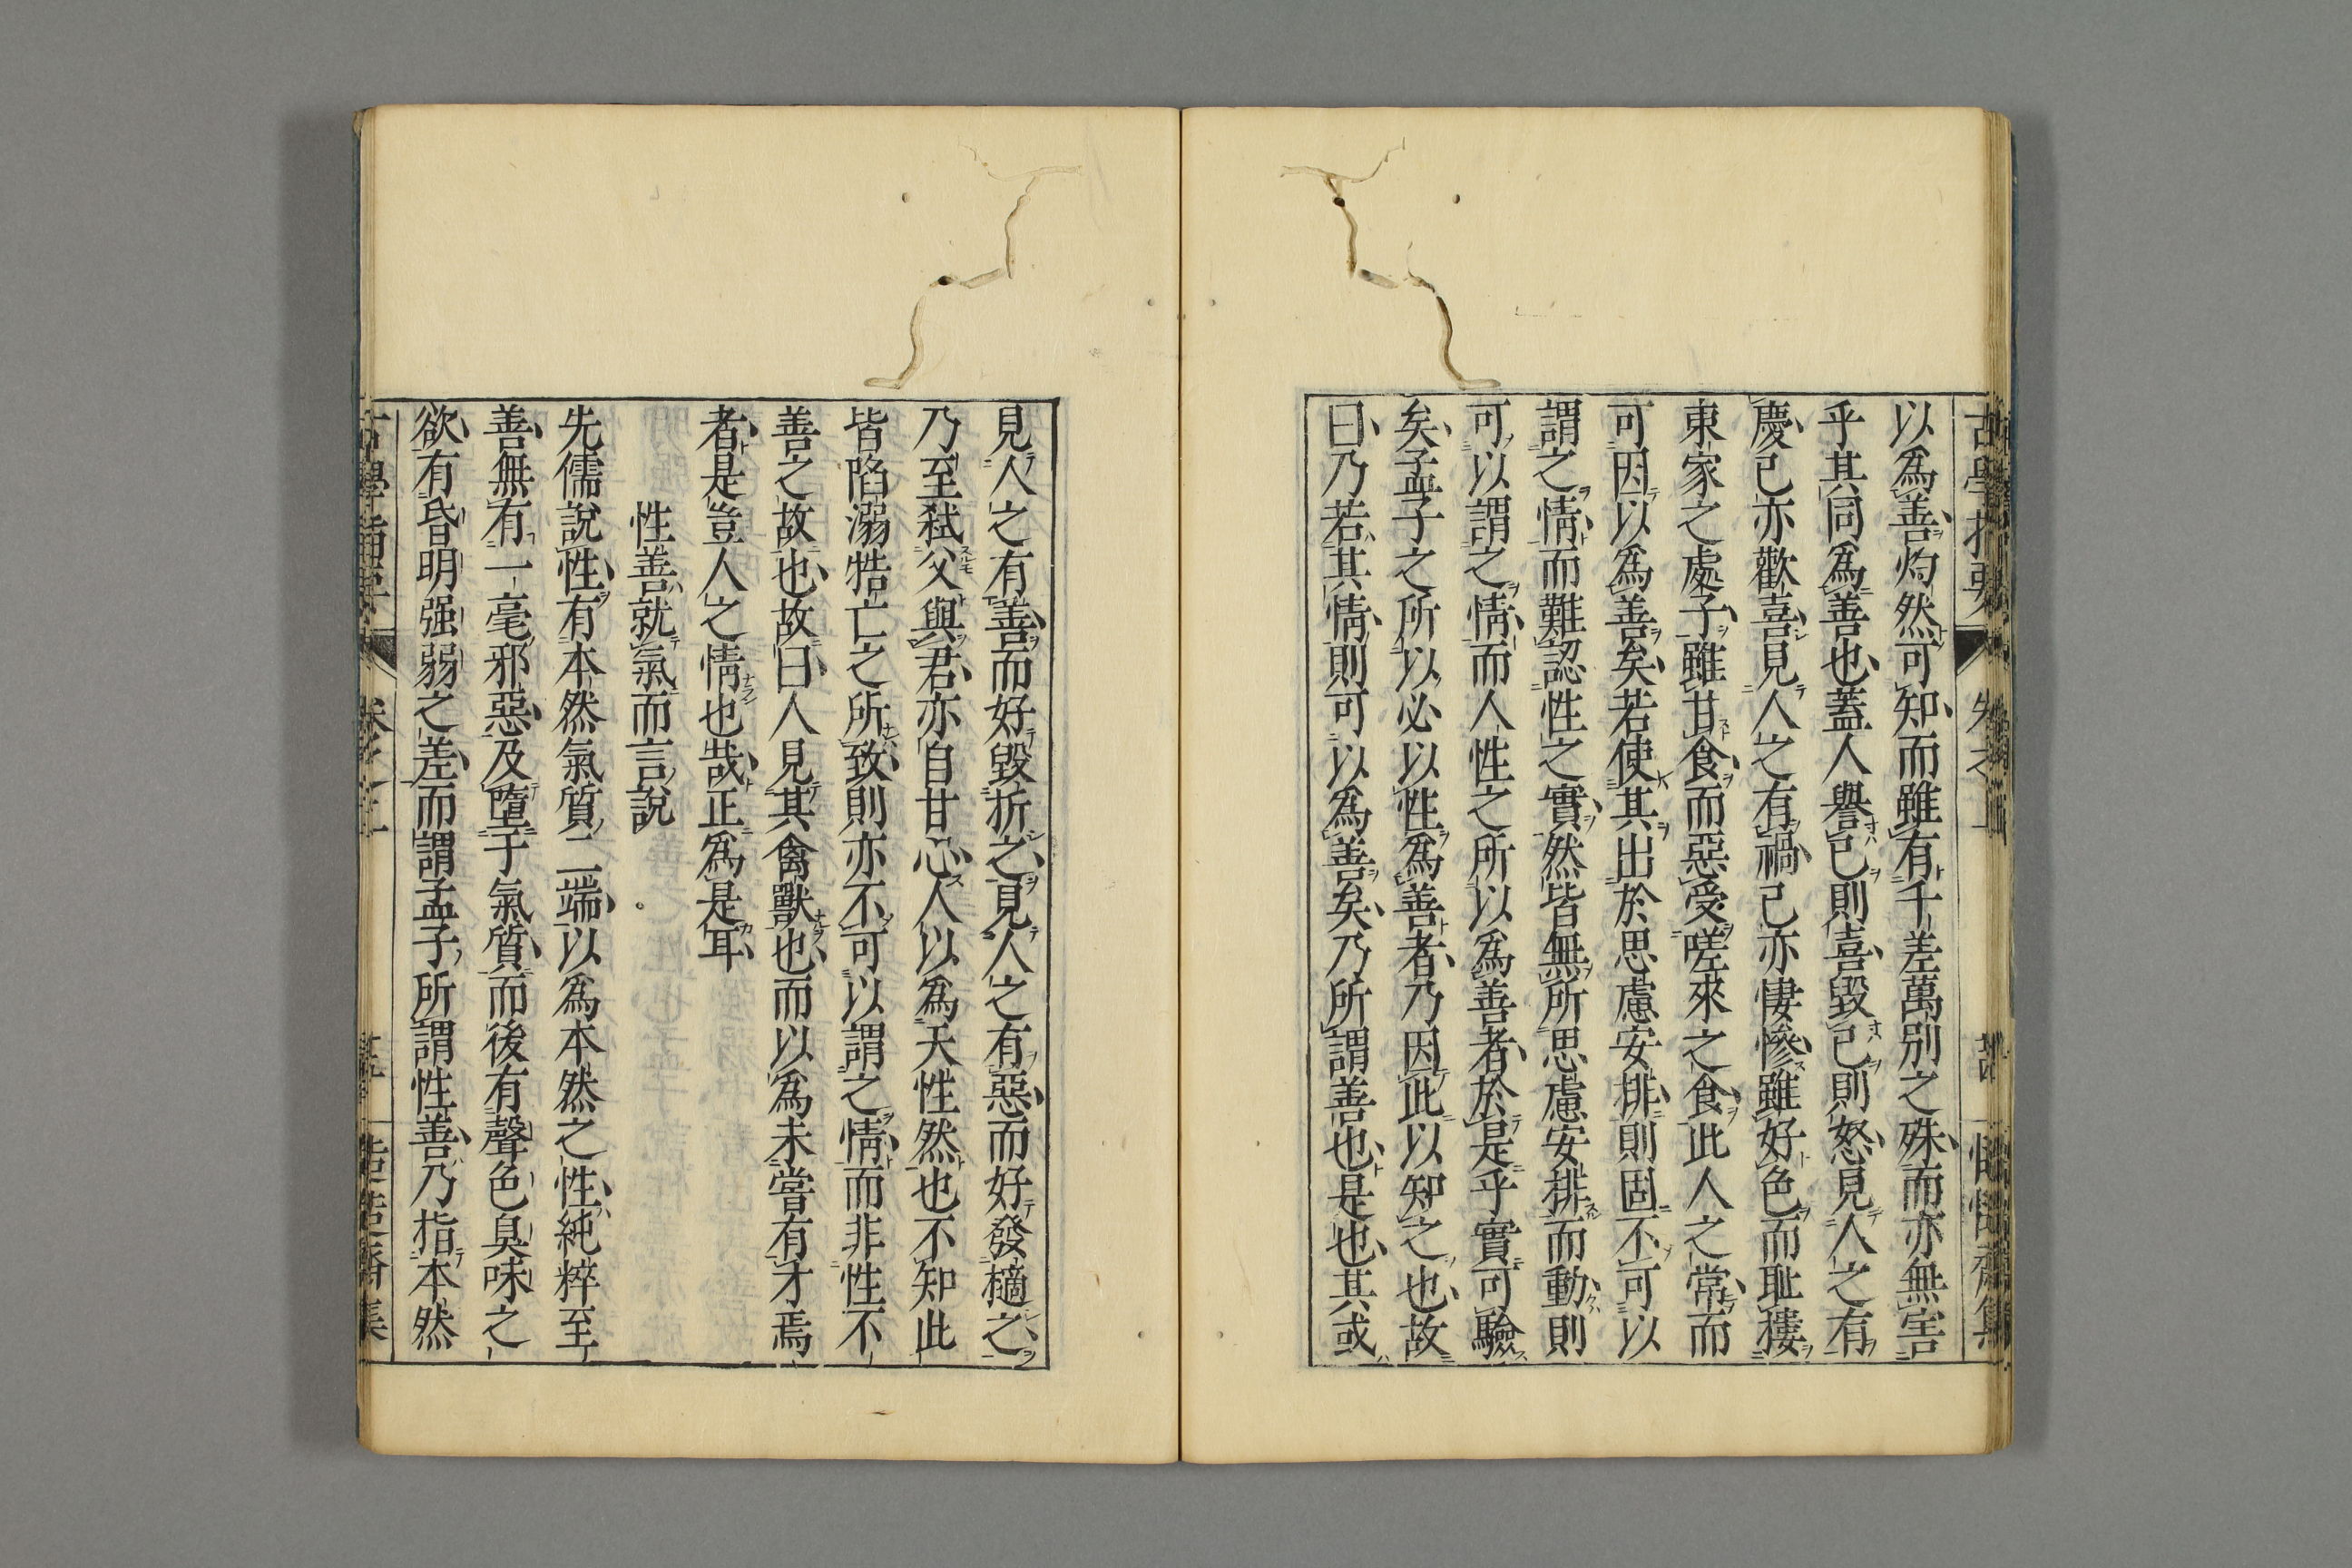 以爲善灼然可知而雖有千差萬別之殊而亦無害
乎其同爲善也蓋人譽己則喜毀己則怒見人之有
慶己亦歡喜見人之有禍己亦悽慘雖好色而耻摟
東家之處子雖甘食而惡受嗟來之食此人之常而
可因以爲善矣若使其出於思慮安排則固不可以
謂之情而難認性之實然皆無所思慮安排而動則
可以謂之情而人性之所以爲善者於是乎實可驗
矣孟子之所以必以性爲善者乃因此以知之也故
曰乃若其情則可以爲善矣乃所謂善也是也其或
見人之有善而好毀折之見人之有惡而好發擿之
乃至弒父與君亦自甘心人以爲天性然也不知此
皆陷溺牿亡之所致則亦不可以謂之情而非性不
善之故也故曰人見其禽獸也而以爲未嘗有才焉
者是豈人之情也哉正爲是耳
性善就氣而言說
先儒說性有本然氣質二端以爲本然之性純粹至
善無有一毫邪惡及墮于氣質而後有聲色臭味之
欲有昏明强弱之差而謂孟子所謂性善乃指本然
古學指要